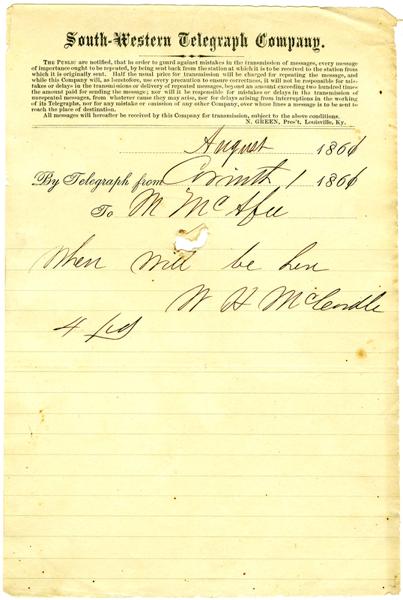 South-Western Telegraph Company.
THE PUBLIC are notified, that in order to guard against mistakes in the transmission of messages, every message
of importance ought to be repeated, by being sent back from the station at which it is to be received to the station from
which it is originally sent. Half the usual price for transmission will be charged for repeating the message, and
while this Company will, as heretofore, use every precaution to ensure correctness, it will not be responsible for mis-
takes or delays in the transmissions or delivery of repeated messages, beyond an amount exceeding two hundred times
the amount paid for sending the message; nor will it be responsible for mistakes or delays in the transmission of
unrepeated messages, from whatever cause they may arise, nor for delays arising from interruptions in the working
of its Telegraphs, nor for any mistake or omission of any other Company, over whose lines a message is to be sent to
reach the place of destination.
All messages will hereafter be received by this Company for transmission, subject to the above conditions.
N. GREEN, Pres't, Louisville, Ky.
August 1861
By Telegraph from Corinth 1 1861
To M McAfee
When will be here
W H McCardle